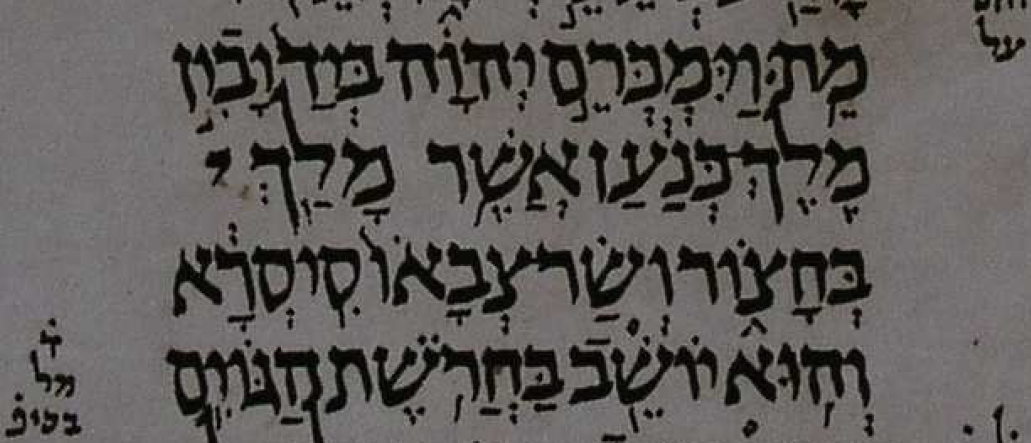 על
מֵֽת׃ וַיִּמְכְּרֵם יְהוָה בְּיַד יָבִין
מֶלֶךְ כְּנַעַן אֲשֶׁר מָלַךְ
בְּחָצוֹר וְשַׂר צְבָאוֹ סִיסְרָא
וְהוּא יוֹשֵׁב בַּחֲרֹשֶׁת הַגּוֹיִם
ד
מל